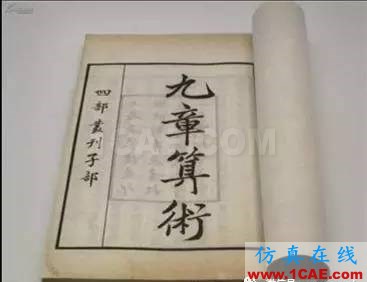 九章算術
四部叢刊子部
1CAE.COM
仿真在线
www.1CAE.com